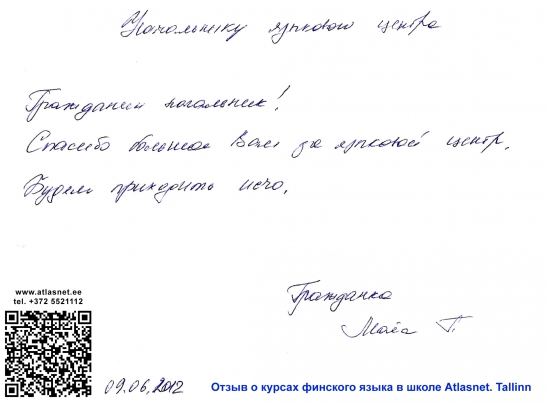 Начальнику языкового центра
Гражданин начальник!
Спасибо большое Вам за языковой центр.
Будем приходить исчо.
Гражданка
Майа Т.
www.atlasnet.ee
tel. +372 5521112
09.06.2012
Отзыв о курсах финского языка в школе Atlasnet. Tallinn